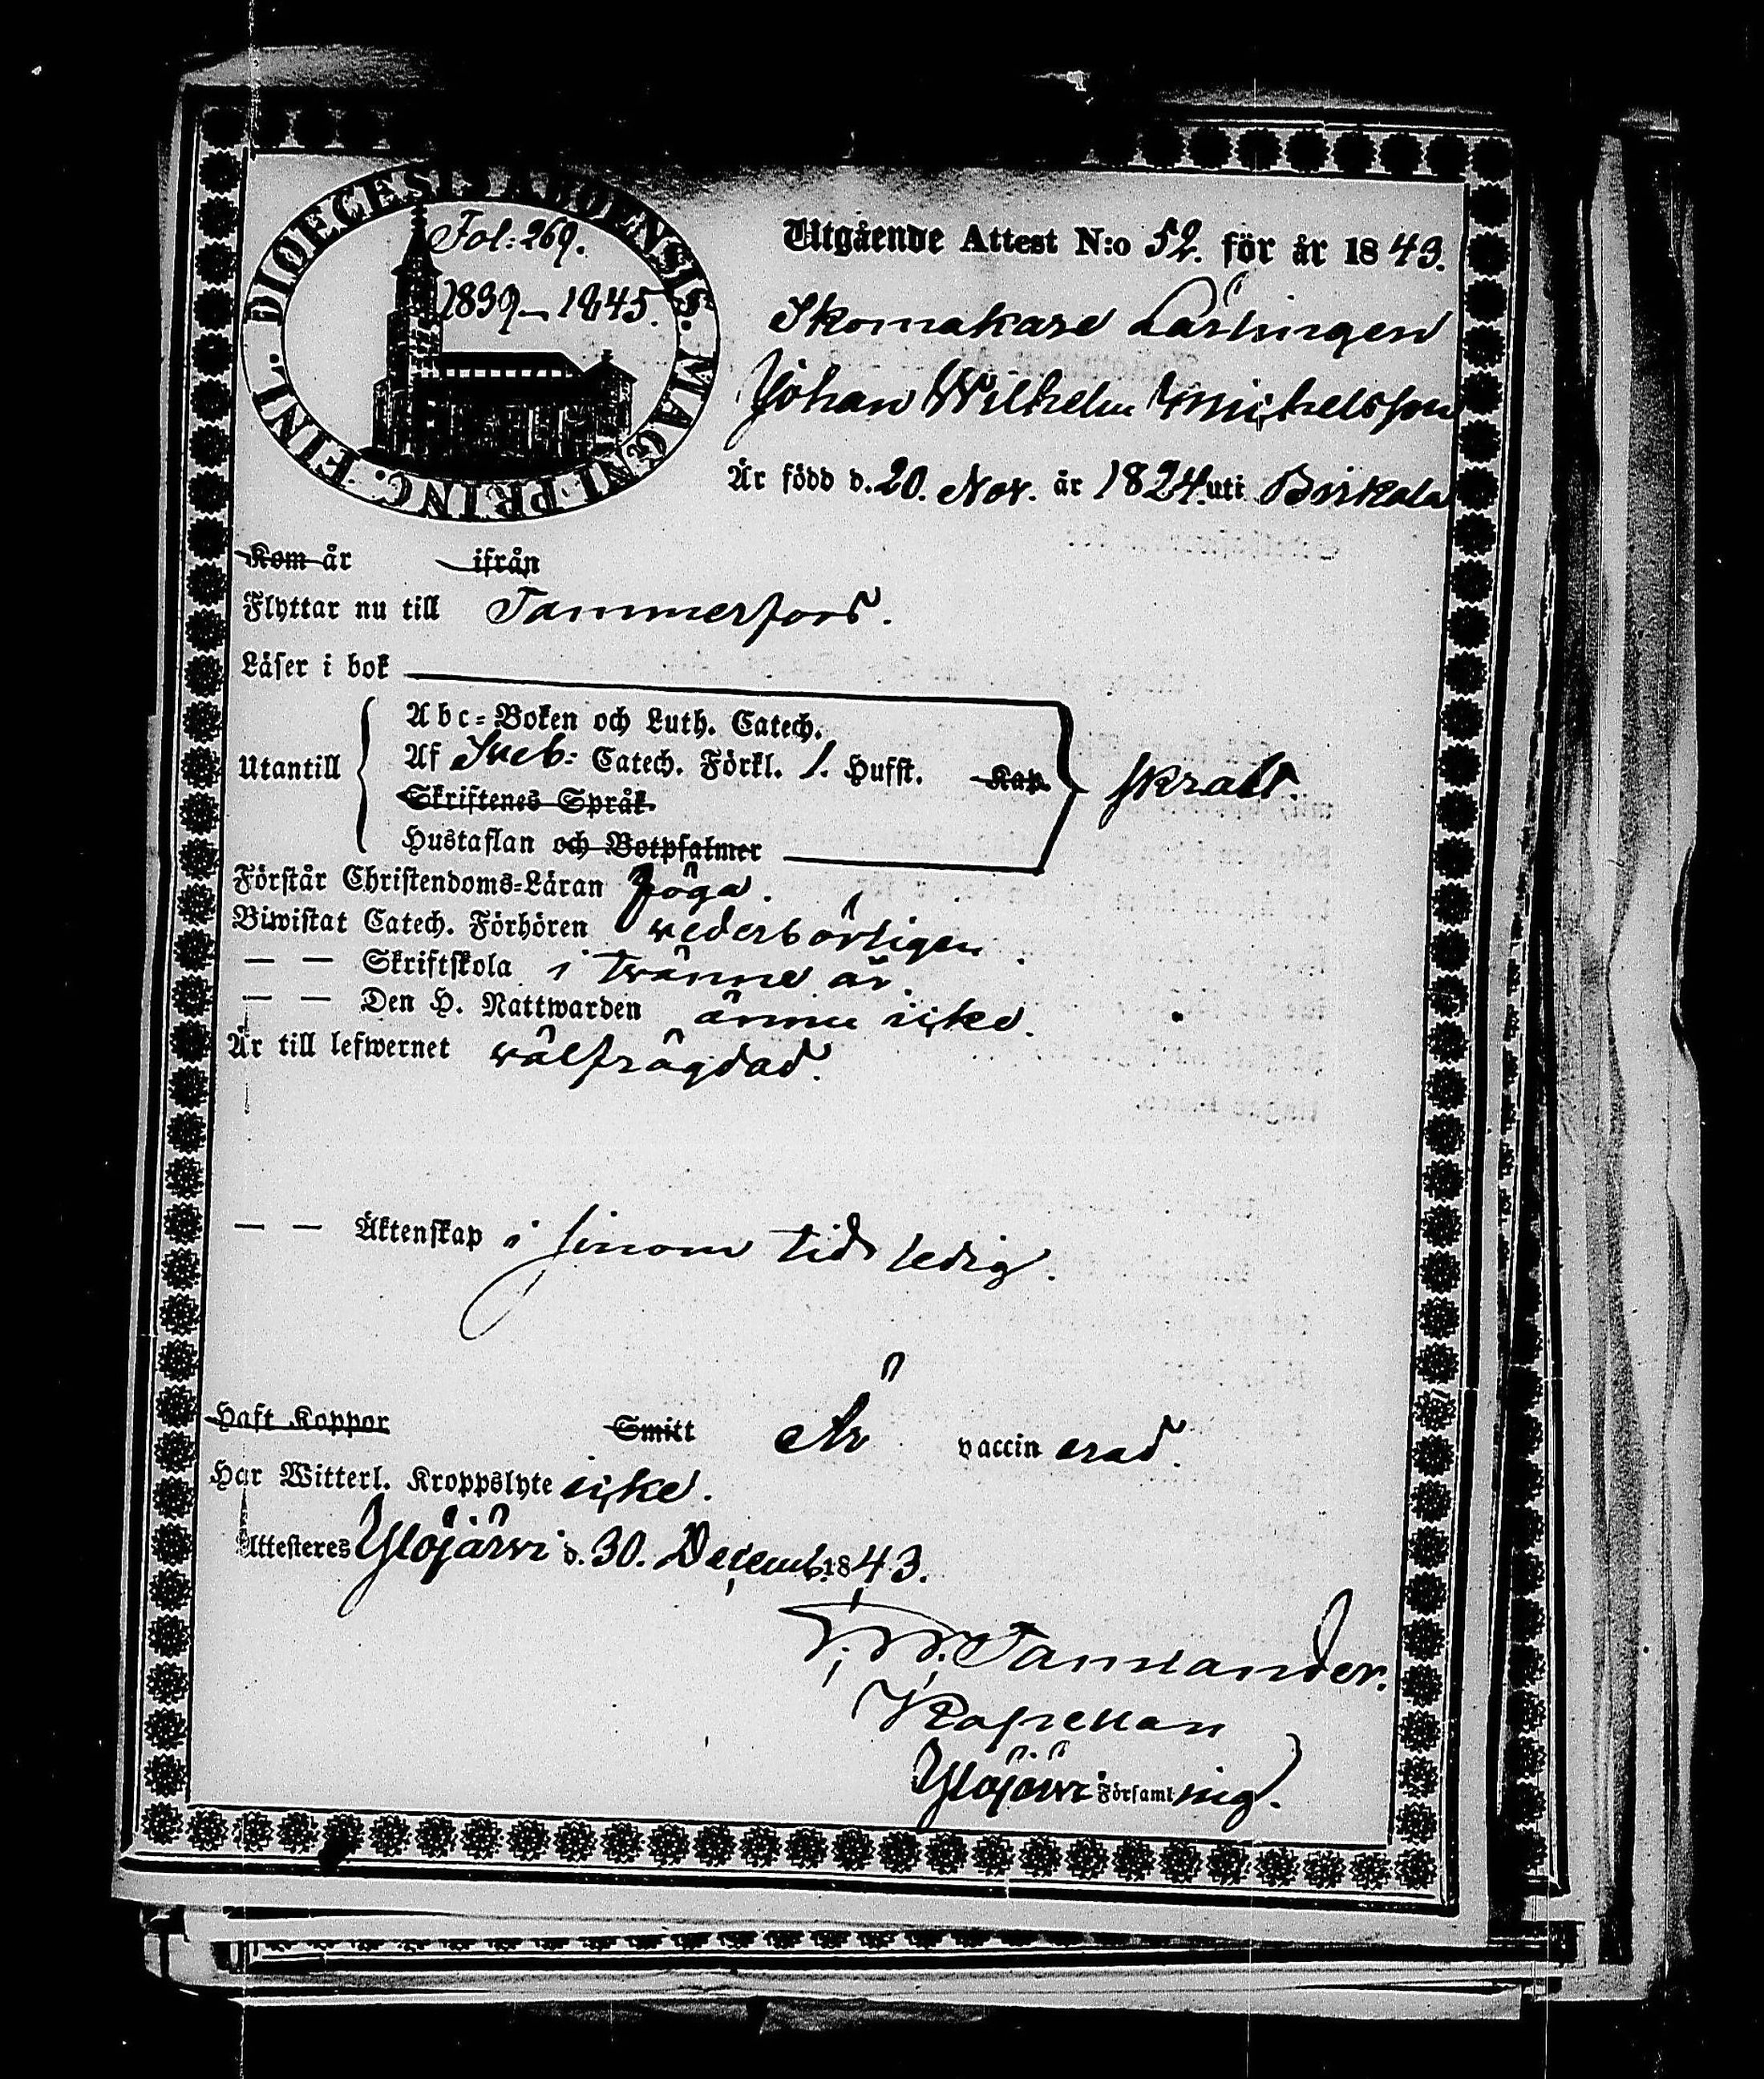 DIOECESIS ABOENSIS. MAGNI PRINC. FINL.
Fol: 269.
1839–1845.
Utgående Attest N:o 52. för år 1843.
Skomakare Lärlingen
Johan Wilhelm Michelsson
Är född d. 20. Nov. år 1824. uti Birkala
Kom år ifrån
Flyttar nu till Tammerfors.
Läser i bok
Utantill
Abc-Boken och Luth. Catech.
Af Sveb: Catech. Förkl. 1. Hufst. Kap.
Skriftenes Språk.
Hustaflan och Botpsalmer
skralt.
Förstår Christendoms-Läran föga.
Biwistat Catech. Förhören wederbörligen.
— — Skriftskola i twänne år.
— — Den H. Nattwarden ännu icke.
Är till lefwernet wälfrägdad.
— — Äktenskap i sinom tid ledig.
Haft Koppor Smitt Är vaccinerad.
Har Witterl. Kroppslyte icke.
Attesteres Ylöjärvi d. 30. Decemb. 1843.
Tamlander.
Kapellan
Ylöjärvi Församlning.